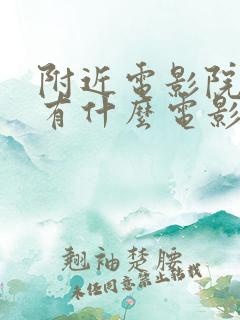 附近電影院
有什麼電影
翹袖楚腰
未经同意禁止转载